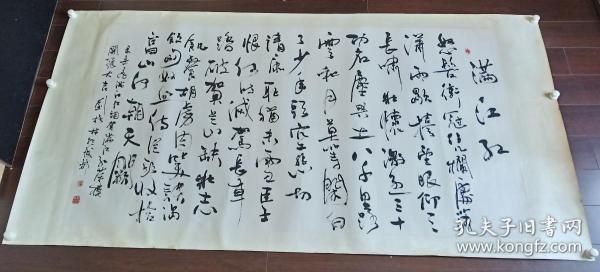 满江红
怒发冲冠凭栏处萧
潇雨歇抬望眼仰天
长啸壮怀激烈三十
功名尘与土八千里路
云和月莫等闲白
了少年头空悲切
靖康耻犹未雪臣子
恨何时灭驾长车
踏破贺兰山缺壮志
饥餐胡虏肉笑谈渴
饮匈奴血待从头收拾
旧山河朝天阙
孔夫子旧书网
www.kongfz.com